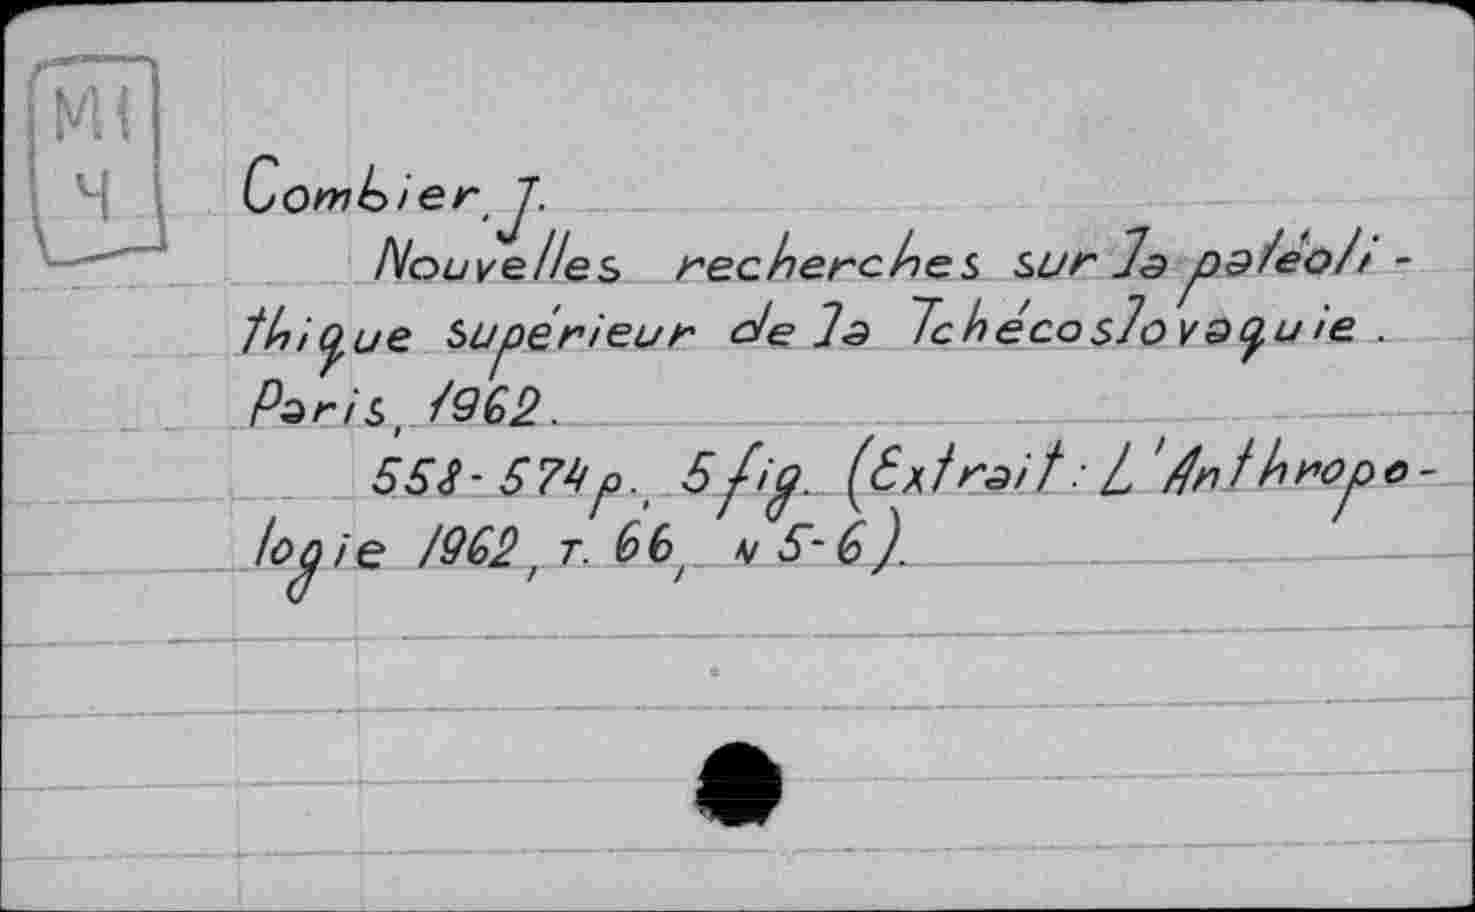 МІ
Ч
Combier, J.
Nouvelles recherches sur la paléoli-
thique supérieur de la Tchécoslovaquie.
Paris, 1962.
558-574 p., 5 fig. (Extrait: L'Anthropo-
logie 1962, т. 66, N 5-6).